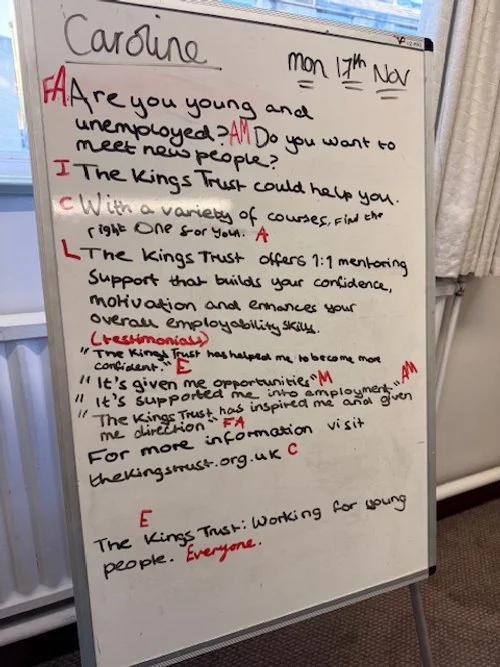 Caroline
mon 17th Nov
FA Are you young and
unemployed? AM Do you want to
meet new people?
I The Kings Trust could help you.
C With a variety of courses, find the
right One for you. A
L The Kings Trust offers 1:1 mentoring
Support that builds your confidence,
motivation and enhances your
overall employability skills.
(testimonials)
"The Kings Trust has helped me to become more
confident." E
"It's given me opportunities" M
"It's supported me into employment." AM
"The Kings Trust has inspired me and given
me direction" FA
For more information visit
thekingstrust.org.uk C
E
The Kings Trust: Working for young
people. Everyone.